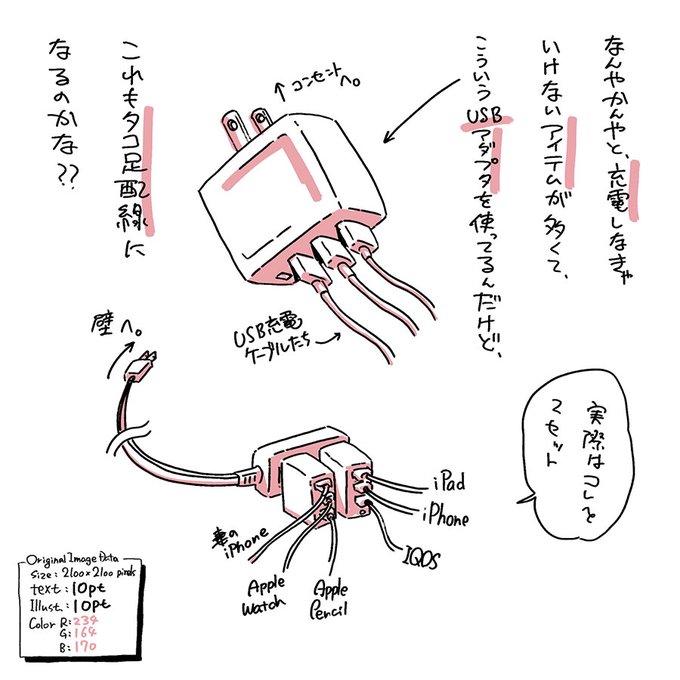 なんやかんやと、充電しなきゃ
いけないアイテムが多くて、
こういうUSBアダプタを使ってるんだけど、
コンセントへ。
これもタコ足配線に
なるのかな??
USB充電
ケーブルたち
壁へ。
実際はコレを
2セット
iPad
iPhone
IQOS
Apple
Pencil
Apple
Watch
妻の
iPhone
Original Image Data
Size: 2100×2100 pixels
text: 10pt
Illust.: 10pt
Color R: 234
G: 164
B: 170